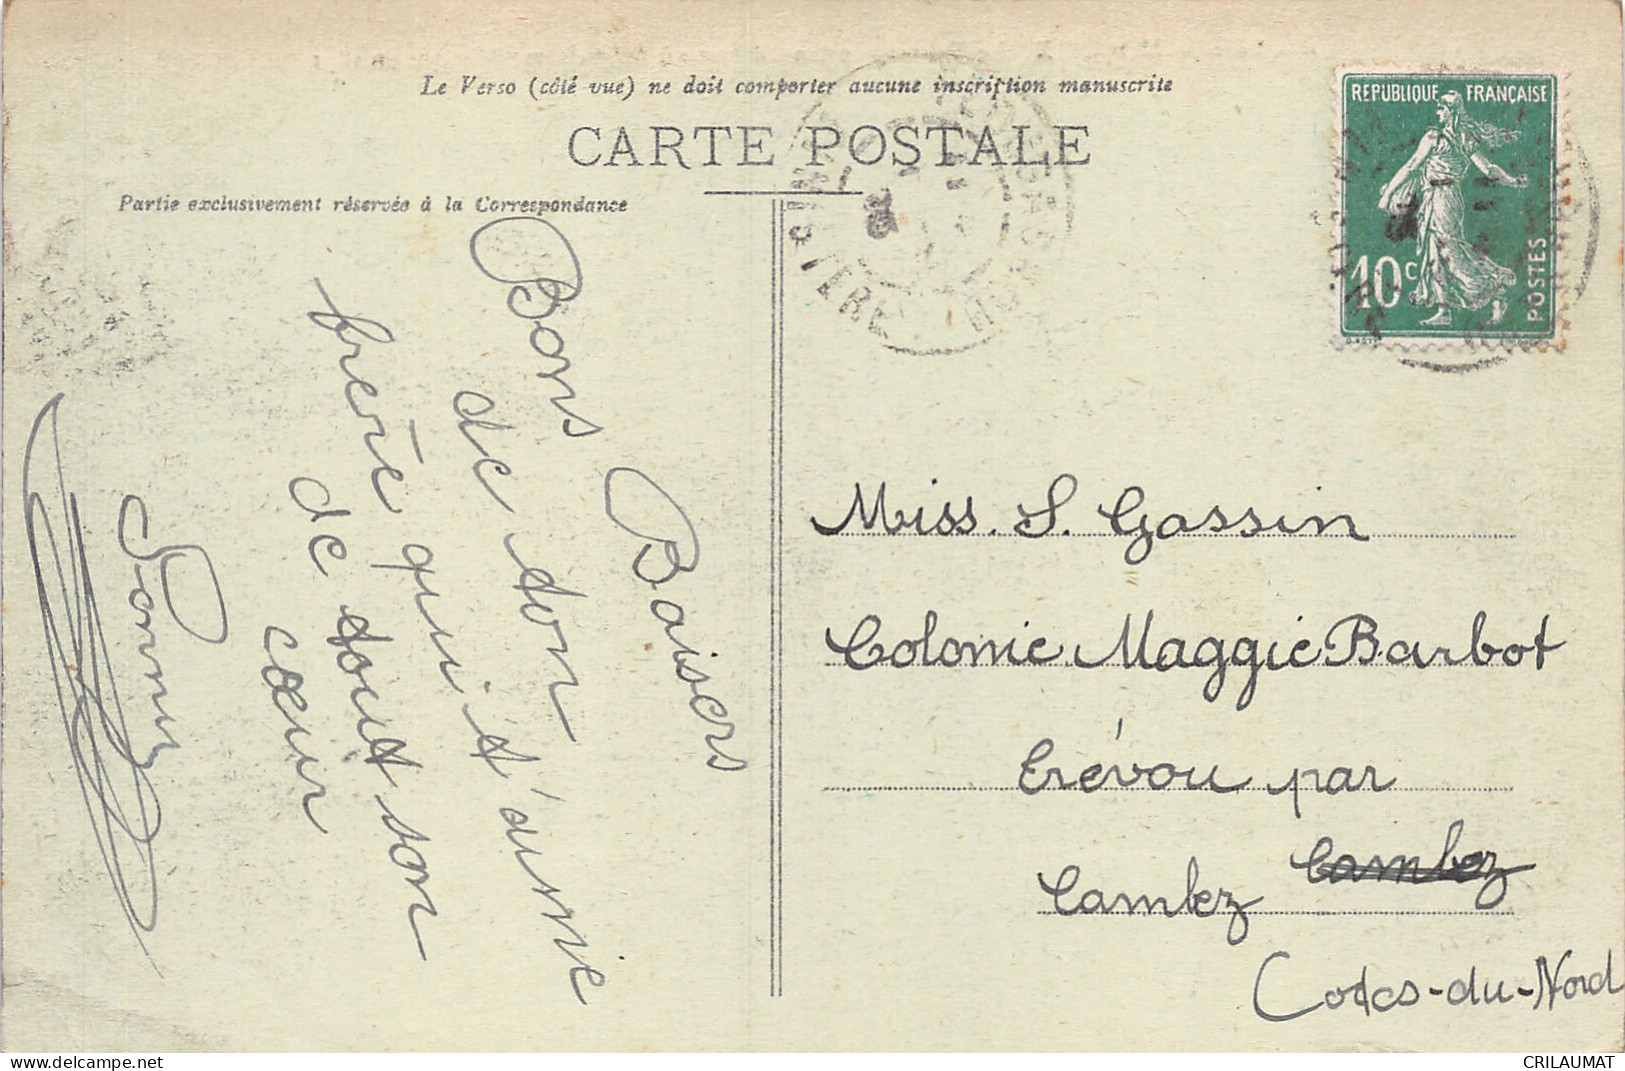 Le Verso (côté vue) ne doit comporter aucune inscription manuscrite
CARTE POSTALE
Partie exclusivement réservée à la Correspondance
REPUBLIQUE FRANÇAISE
10c
POSTES
Bons Baisers
de ton
frère qui t'aime
de tout son
cœur
Miss. S. Gassin
Colonie Maggie Barbot
Trévou par
Cambez Cambez
Cotes-du-Nord
delcampe.net
CRILAUMAT